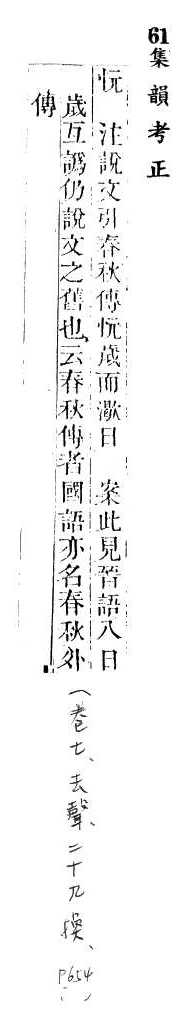 61集韻考正
忨　注說文引春秋傳忨歲而㵣日　案此見晉語八日
歲互譌仍說文之舊也、云春秋傳者國語亦名春秋外
傳
(卷七、去聲、二十九換、P654)